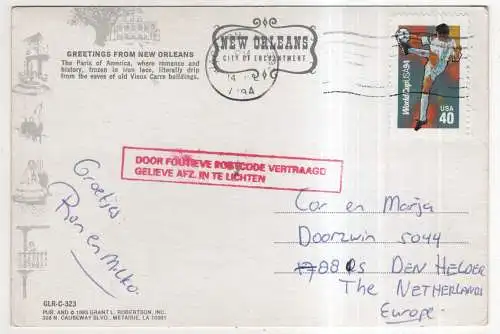 GREETINGS FROM NEW ORLEANS
The Paris of America, where romance and
history, frozen in iron lace, literally drip
from the eaves of old Vieux Carre buildings.
NEW ORLEANS
CITY OF ENCHANTMENT
14
World Cup USA 94
USA
40
DOOR FOUTIEVE POSTCODE VERTRAAGD
GELIEVE AFZ. IN TE LICHTEN
Groetjes
Ron en Milko.
Cor en Marja
Doorzwin 5044
1788 DEN HELDER
The NETHERLANDS
Europe.
GLR-C-323
PUB. AND © 1993 GRANT L. ROBERTSON, INC.
N. CAUSEWAY BLVD., METAIRIE, LA 70001